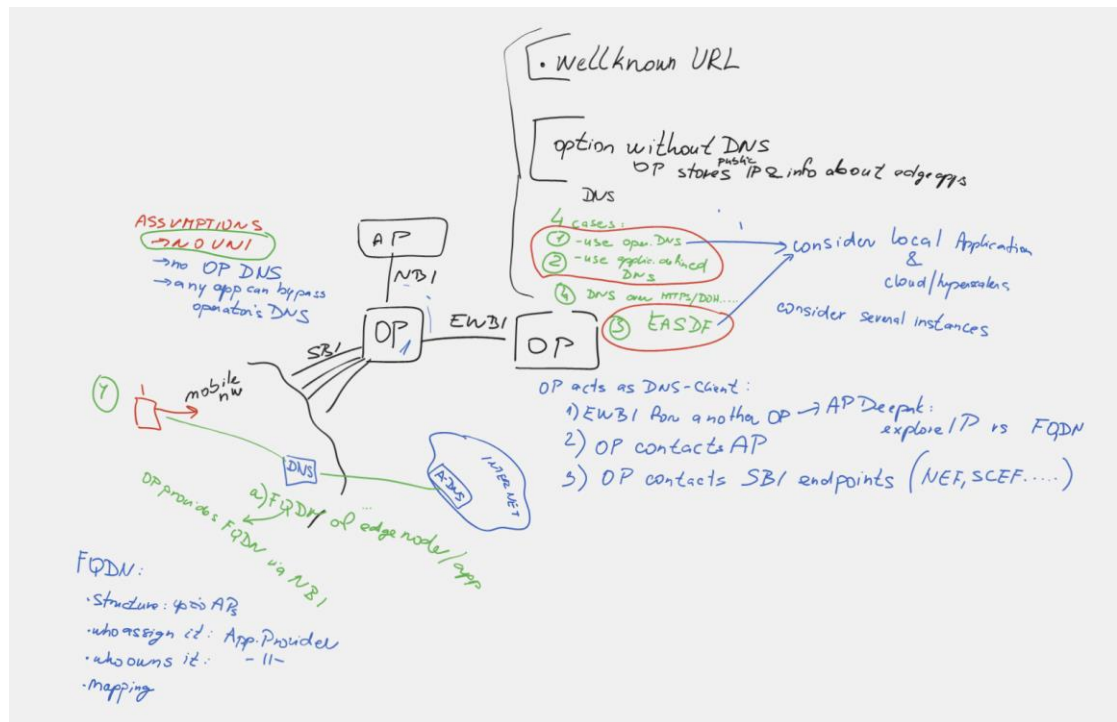 . Wellknown URL
option without DNS
OP stores public IP & info about edge apps
DNS
4 cases:
① - use oper. DNS
② - use applic. defined
DNS
④ DNS over HTTPS/DOH.....
③ EASDF
consider Local Application
&
cloud/hyperscalers
consider several instances
ASSUMPTIONS
→ NO UNI
→ no OP DNS
→ any app can bypass
operator's DNS
AP
NBI
OP
1
EWBI
OP
SBI
mobile
nw
DNS
A-DNS
INTERNET
a) FQDN of edge node/app
OP provides FQDN via NBI
OP acts as DNS-Client:
1) EWBI for another OP → AP Deepak:
explore IP vs FQDN
2) OP contacts AP
3) OP contacts SBI endpoints (NEF, SCEF.....)
FQDN:
. Structure: up to APs
. who assign it: App. Provider
. who owns it: - 11 -
. Mapping